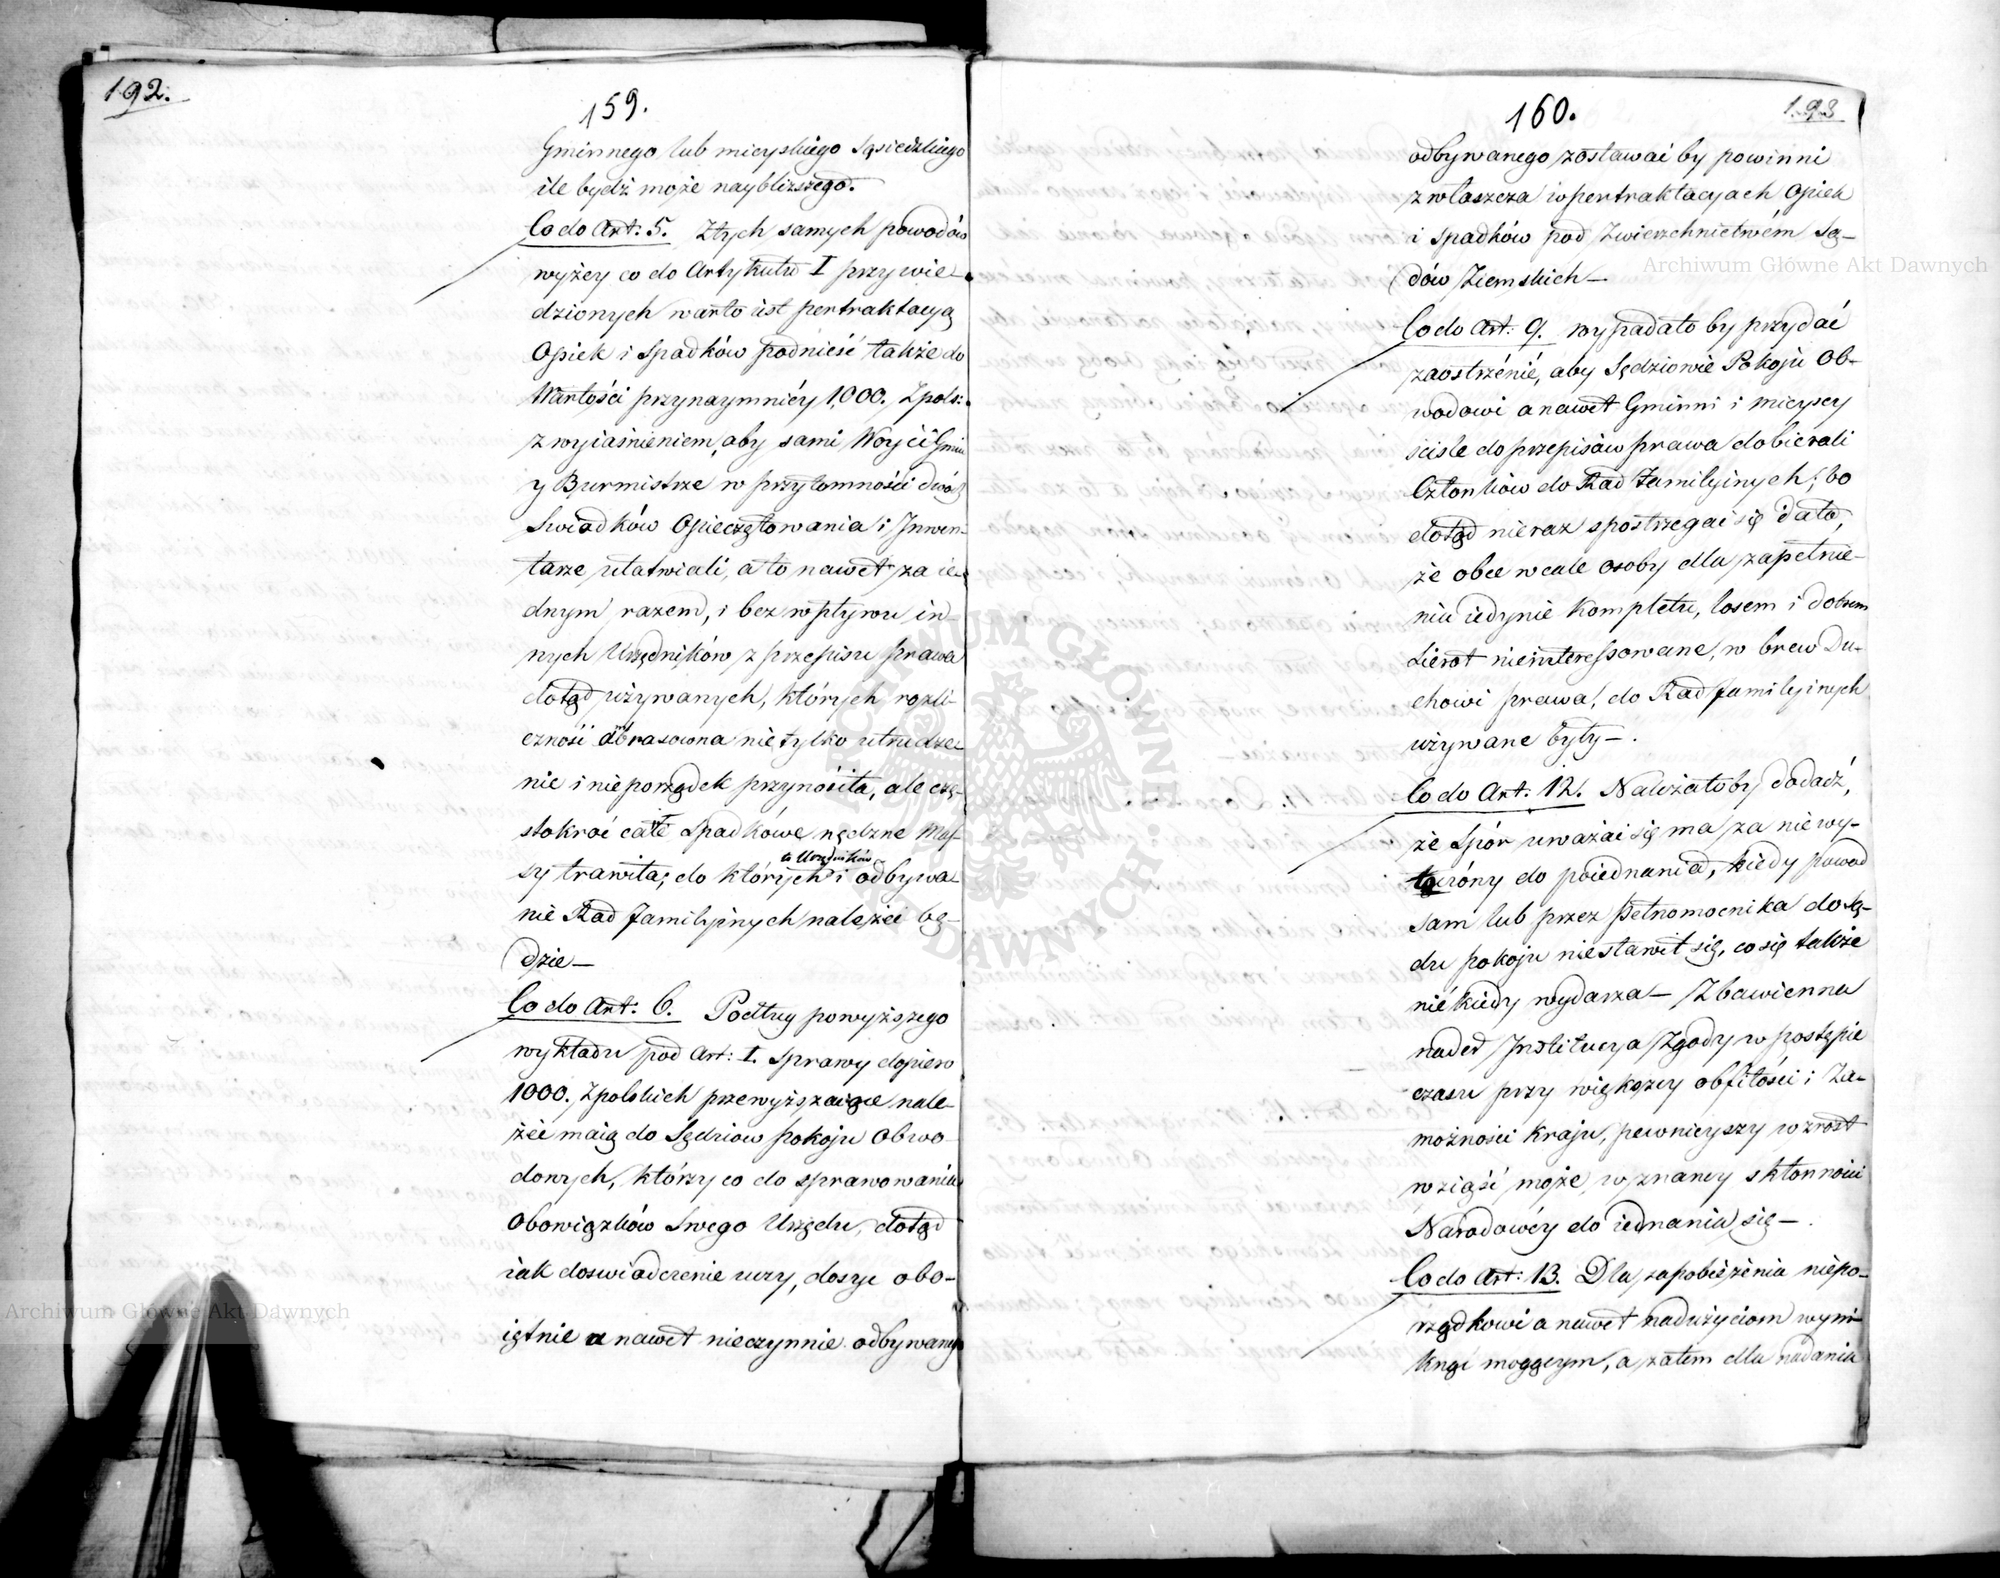 192.
159.
Gminnego lub mieyskiego Sąsiedzkiego
ile bydź może naybliższego.
Co do Art: 5. Z tych samych powodów
wyżey co do Artykułu I przywie-
dzionych warto iest pertraktacyą
Opiek i Spadków podnieść także do
Wartości przynaymniéy 1,000. Zpols:
z wyiaśnieniem, aby sami Woyci Gmin
y Burmistrze w przytomności dwóch
Swiadków Opieczętowania i Inwen-
tarze ułatwiali, a to nawet za ie-
dnym razem, i bez wpływu in-
nych Urzędników z przepisu prawa
dotąd używanych, których rozli-
czność nietylko utrudze-
nie i nieporządek przynósiła, ale czę-
stokroć całé Spadkówe nędzne Mas-
sy trawiła; do których to Urzędników i odbywa-
nie Rad familyinych należeć bę-
dzie —
Co do Art: 6. Podług powyższego
wykładu pod Art: I. Sprawy dopiero
1000. Zpolskich przewyższaiące nale-
żéć maią do Sędziow pokoju Obwo-
dowych, którzy co do sprawowania
Obowiązków Swego Urzędu, dotąd
iak doswiadczenie uczy, dosyć obo-
iętnie a nawet nieczynnie odbywanego
193
160.
odbywanego zostawać by powinni
zwłaszcza w pertraktacyach Opiek
i Spadków pod Zwierzchnictwém Są-
dów Ziemskich —
Co do Art: 9. wypadało by przydać
zaostrzénié, aby Sędziowie Pokoju Ob-
wodowi a nawet Gminni i mieyscy
ściśle do przepisów prawa dobierali
Członków do Rad Familyinych; bo
dotąd nieraz spostrzegać się dało,
że obce wcale osoby dla zapełnie-
niu iedynie kompletu, losem i dobrem
Sierot nieinteressowane, w brew Du-
chowi prawa, do Rad familyinych
używane były — .
Co do Art: 12. Należałoby dodadź,
że Spór uważać się ma za niewy-
taróny do poiednania, kiedy powod
sam lub przez Pełnomocnika do Są-
du pokoju niestawił się, co się także
niékiedy wydarza — Zbawienna
nader Instytucya Zgody w postępie
czasu przy większey obfitości i Za-
możności kraju, pewnieyszy wzrost
wziąść może w znaney skłonności
Narodowéy do iednania się — .
Co do Art: 13. Dla zapobieżenia niépo-
rządkowi a nawet nadużyciom wyni-
knąć mogącym, a zatem dla nadania
Archiwum Główne Akt Dawnych
Archiwum Główne Akt Dawnych
ARCHIWUM GŁÓWNE AKT DAWNYCH